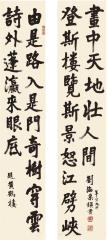 由是路入是門奇樹穿雲
詩外蓬瀛來眼底
登斯樓覽斯景怒江劈峽
畫中天地壯人間
劉海粟撰書